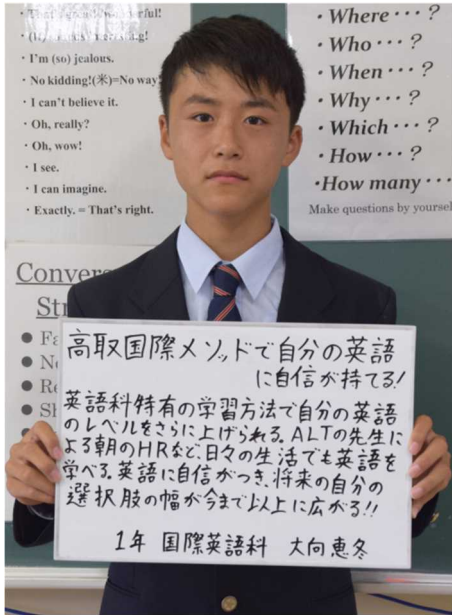 · I'm (so) jealous.
· No kidding!(米)=No way
· I can't believe it.
· Oh, really?
· Oh, wow!
· I see.
· I can imagine.
· Exactly. = That's right.
· Where · · · ?
· Who · · · ?
· When · · · ?
· Why · · · ?
· Which · · · ?
· How · · · ?
·How many · · ·
Make questions by yoursel
Conver
St
高取国際メソッドで自分の英語
に自信が持てる!
英語科特有の学習方法で自分の英語
のレベルをさらに上げられる。ALTの先生に
よる朝のHRなど、日々の生活でも英語を
学べる。英語に自信がつき、将来の自分の
選択肢の幅が今まで以上に広がる!!
1年 国際英語科 大向恵冬